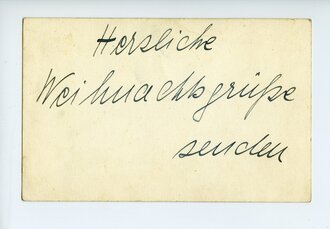 Herzliche
Weihnachtsgrüße
senden